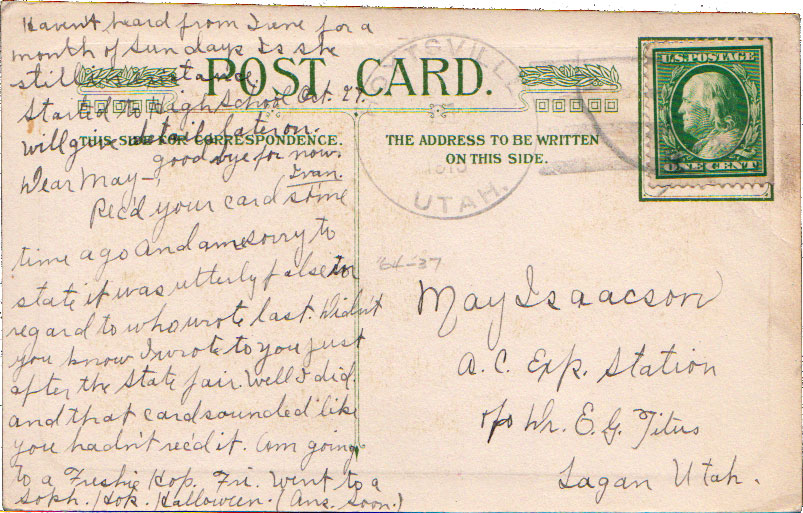 Havent heard from Irene for a
month of Sundays Is she
still in existance.
Started to High School Oct. 27.
will give details later on.
good bye for now.
Ivan.
POST CARD.
THIS SIDE FOR CORRESPONDENCE.
THE ADDRESS TO BE WRITTEN
ON THIS SIDE.
Dear May—
Rec'd your card some
time ago and am sorry to
state it was utterly false in
regard to who wrote last. Didn't
you know I wrote to you just
after the State fair. Well I did.
and that card sounded like
you hadn't rec'd it. Am going
to a Freshie Hop. Fri. Went to a
Soph. Hop. Halloween. (Ans. Soon.)
HOYTSVILLE
UTAH.
U.S. POSTAGE
ONE CENT
64-37
May Isaacson
A.C. Exp. Station
c/o Dr. E.G. Titus
Logan Utah.